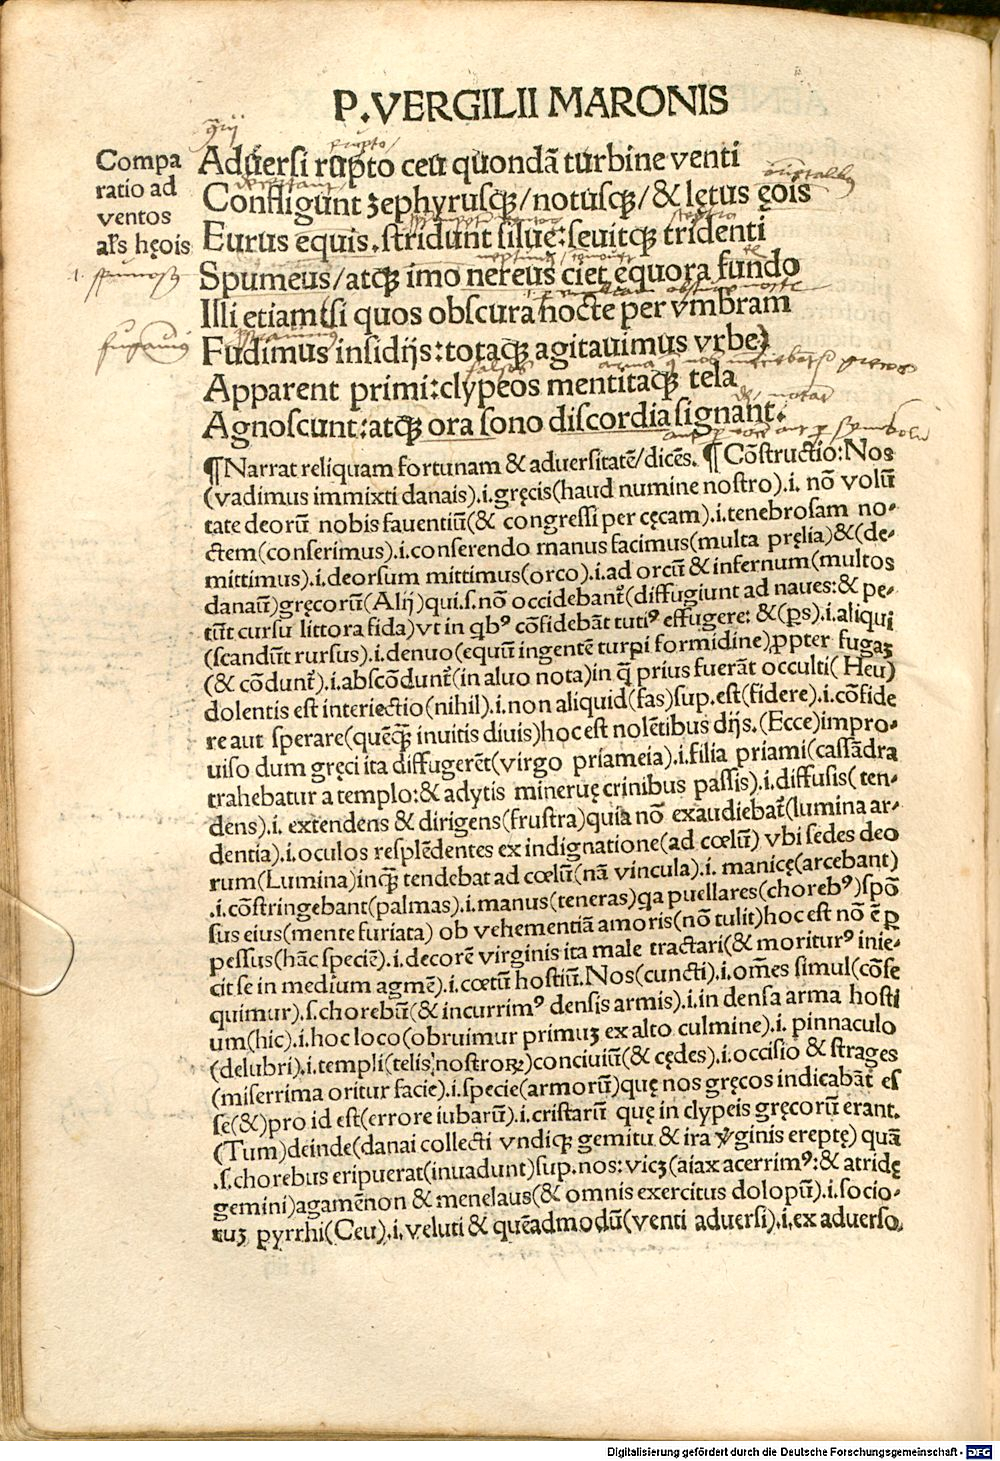 P.VERGILII MARONIS
Compa
ratio ad
ventos
al's hęois
Aduersi rupto ceu quondã turbine venti
Confligunt zephyrusqꝫ/notusqꝫ/& lętus ęois
Eurus equis.stridunt siluę:sęuitqꝫ tridenti
Spumeus/atqꝫ imo nereus ciet ęquora fundo
Illi etiam(si quos obscura nocte per vmbram
Fudimus insidijs:totaqꝫ agitauimus vrbe)
Apparent primi:clypeos mentitaqꝫ tela
Agnoscunt:atqꝫ ora sono discordia signant.
¶Narrat reliquam fortunam & aduersitatẽ/dicẽs. ¶Cõstructio:Nos
(vadimus immixti danais).i.gręcis(haud numine nostro).i. nõ volũ
tate deorũ nobis fauentiũ(& congressi per cęcam).i.tenebrosam no-
ctem(conserimus).i.conserendo manus facimus(multa pręlia)&(de-
mittimus).i.deorsum mittimus(orco).i.ad orcũ & infernum(multos
danaũ)gręcorũ(Alij)qui.s.nõ occidebant̃(diffugiunt ad naues:& pe-
tũt cursu littora fida)vt in qbꝰ cõfidebãt tutiꝰ effugere: &(ꝑs).i.aliqui
(scandũt rursus).i.denuo(equũ ingentẽ turpi formidine)ꝓpter fugaꝫ
(& cõdunt̃).i.abscõdunt̃(in aluo nota)in q̃ prius fuerãt occulti( Heu)
dolentis est interiectio(nihil).i.non aliquid(fas)sup.est(fidere).i.cõfide
re aut sperare(quẽqꝫ̃ inuitis diuis)hoc est nolẽtibus dijs.(Ecce)impro-
uiso dum gręci ita diffugerẽt(virgo priameia).i.filia priami(cassãdra
trahebatur a templo:& adytis mineruę crinibus passis).i.diffusis( ten-
dens).i. extendens & dirigens(frustra)quia nõ exaudiebat̃(lumina ar-
dentia).i.oculos resplẽdentes ex indignatione(ad cœlũ) vbi sedes deo
rum(Lumina)inqꝫ̃ tendebat ad cœlũ(nã vincula).i. manicę(arcebant)
.i.cõstringebant(palmas).i.manus(teneras)qa puellares(chorebꝰ)spõ
sus eius(mente furiata) ob vehementiã amoris(nõ tulit)hoc est nõ ẽ ꝑ
pessus(hãc speciẽ).i.decorẽ virginis ita male tractari(& moriturꝰ inie-
cit se in medium agmẽ).i.cœtũ hostiũ.Nos(cuncti).i.oẽs simul(cõse
quimur).s.chorebũ(& incurrimꝰ densis armis).i.in densa arma hosti
um(hic).i.hoc loco(obruimur primuꝫ ex alto culmine).i. pinnaculo
(delubri).i.templi(telis nostroꝝ)conciuiũ(& cędes).i.occisio & strages
(miserrima oritur facie).i.specie(armorũ)quę nos gręcos indicabãt es
se(&)pro id est(errore iubarũ).i.cristarũ quę in clypeis gręcorũ erant.
(Tum)deinde(danai collecti vndiqꝫ gemitu & ira v̓ginis ereptę) quã
.s.chorebus eripuerat(inuadunt)sup.nos:vicꝫ(aiax acerrimꝰ:& atridę
gemini)agamẽnon & menelaus(& omnis exercitus dolopũ).i.socio-
ruꝫ pyrrhi(Ceu).i.veluti & quẽadmodũ(venti aduersi).i.ex aduerso
Digitalisierung gefördert durch die Deutsche Forschungsgemeinschaft - DFG